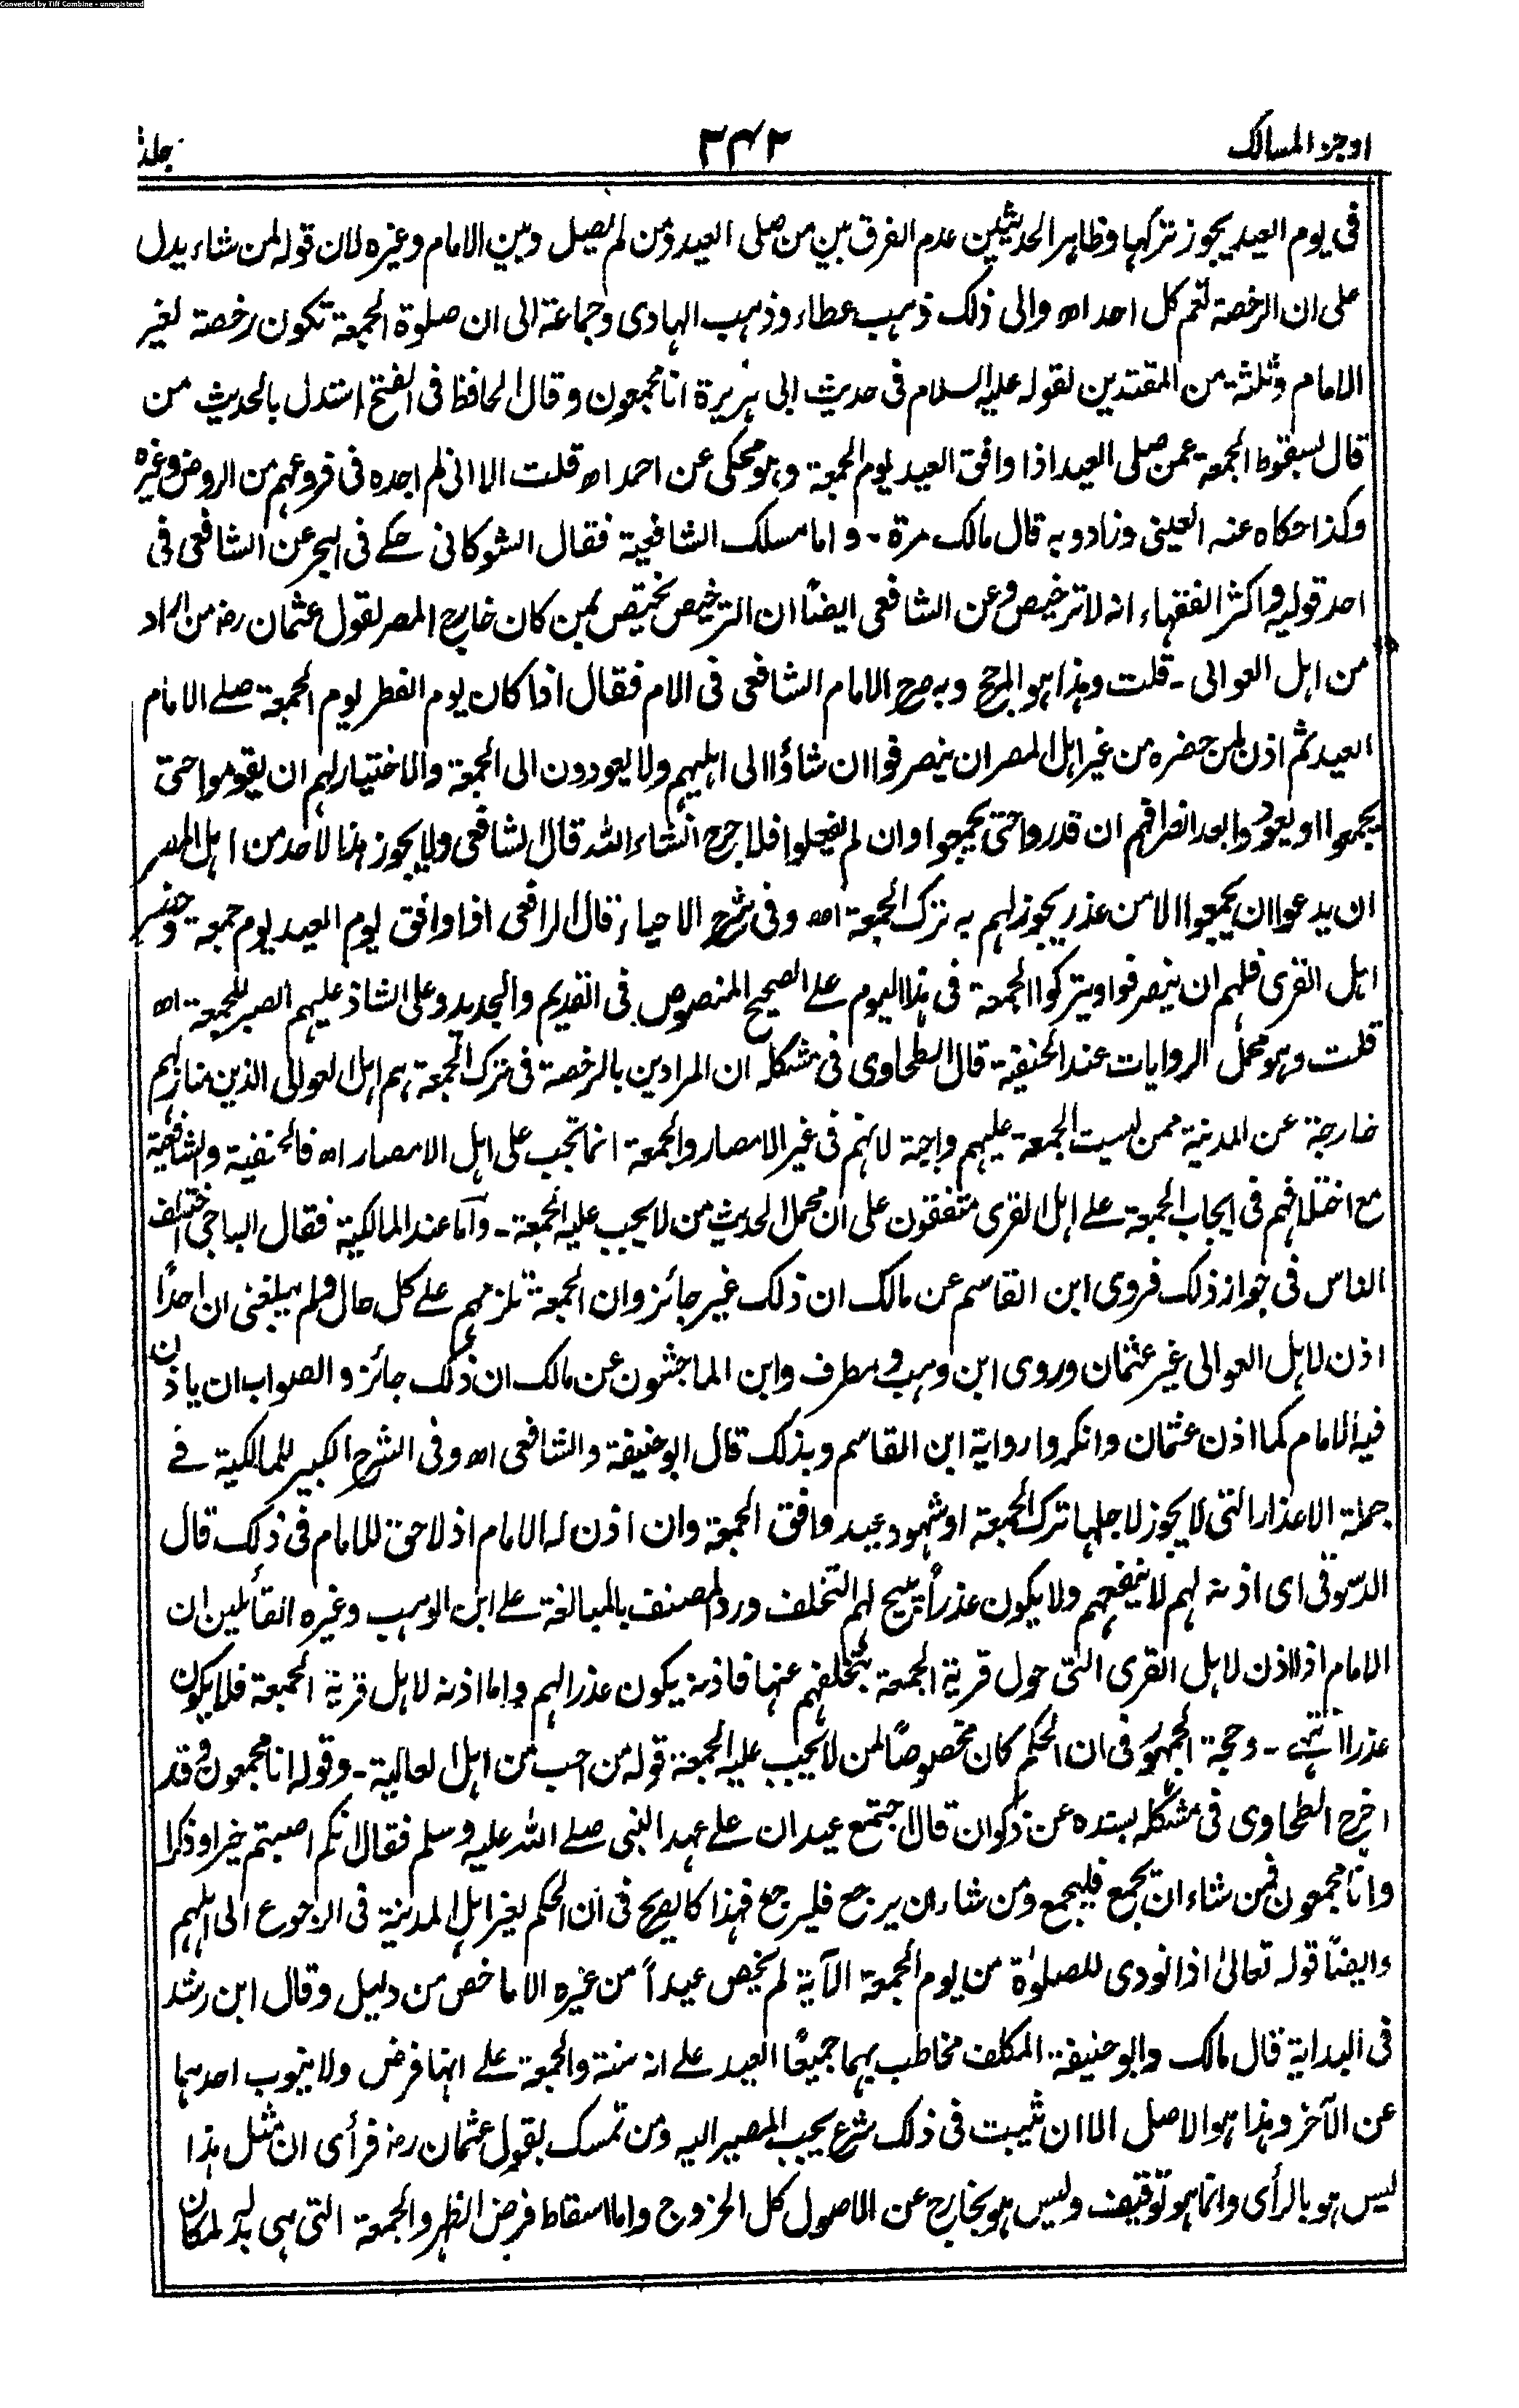 Converted by Tiff Combine - unregistered
اوجز المسالك
٣٤٢
جلد
فى يوم العيد يجوز تركها وظاهر الحديثين عدم الفرق بين من صلى العيد ومن لم يصل وبين الامام وغيره لان قوله لمن شاء يدل
على ان الرخصة تعم كل احد اھ والى ذلك ذهب عطاء وذهب الهادى وجماعة الى ان صلوة الجمعة تكون رخصة لغير
الامام وثلثة من المقتدين لقوله عليه السلام فى حديث ابى هريرة انا مجمعون وقال الحافظ فى الفتح استدل بالحديث من
قال بسقوط الجمعة عمن صلى العيد اذا وافق العيد يوم الجمعة وهو محكى عن احمد اھ قلت الا انى لم اجده فى فروعهم من الروض وغيره
وكذا حكاه عنه العينى وزاد وبه قال مالك مرة - واما مسلك الشافعية فقال الشوكانى حكے فى البحر عن الشافعى فى
احد قوليه واكثر الفقهاء انه لا ترخيص وعن الشافعى ايضاً ان الترخيص يختص بمن كان خارج المصر لقول عثمان رضہ من اراد
من اهل العوالى - قلت وهذا هو المرجح وبه صرح الامام الشافعى فى الام فقال اذا كان يوم الفطر يوم الجمعة صلے الامام
العيد ثم اذن لمن حضره من غير اهل المصر ان ينصرفوا ان شاؤا الى اهليهم ولا يعودون الى الجمعة والاختيار لهم ان يقوموا حتى
يجمعوا او يعودوا بعد انصرافهم ان قدروا حتى يجمعوا وان لم يفعلوا فلا حرج انشاء الله قال الشافعى ولا يجوز هذا لاحد من اهل المصر
ان يدعوا ان يجمعوا الا من عذر يجوز لهم به ترك الجمعة اھ وفى شرح الاحياء قال الرافعى اذا وافق يوم العيد يوم جمعة وحضر
اهل القرى فلهم ان ينصرفوا ويتركوا الجمعة فى هذا اليوم علے الصحيح المنصوص فى القديم والجديد وعلى الشاذ عليهم الصبر للجمعة اھ
قلت وهو محمل الروايات عند الحنفية قال الطحاوى فى مشكله ان المرادين بالرخصة فى ترك الجمعة هم اهل العوالى الذين منازلهم
خارجة عن المدينة ممن ليست الجمعة عليهم واجبة لانهم فى غير الامصار والجمعة انما تجب على اهل الامصار اھ فالحنفية والشافعية
مع اختلافهم فى ايجاب الجمعة علے اهل القرى متفقون على ان محمل الحديث من لا يجب عليه الجمعة - وأما عند المالكية فقال الباجى اختلف
الناس فى جواز ذلك فروى ابن القاسم عن مالك ان ذلك غير جائز وان الجمعة تلزمهم علے كل حال ولم يبلغنى ان احداً
اذن لاهل العوالى غير عثمان وروى ابن وهب ومطرف وابن الماجشون عن مالك ان ذلك جائز والصواب ان ياذن
فيه الامام كما اذن عثمان وانكروا رواية ابن القاسم وبذلك قال ابو حنيفة والشافعى اھ وفى الشرح الكبير للمالكية فے
جملة الاعذار التى لا يجوز لاجلها ترك الجمعة او شهود عيد وافق الجمعة وان اذن له الامام اذ لا حق للامام فى ذلك قال
الدسوقى اى اذنه لهم لا ينفعهم ولا يكون عذراً يبيح لهم التخلف ورد المصنف بالمبالغة علے ابن الوهب وغيره القائلين ان
الامام اذا اذن لاهل القرى التى حول قرية الجمعة بتخلفهم عنها فاذنه يكون عذرا لهم واما اذنه لاهل قرية الجمعة فلا يكون
عذرا انتہے - وحجة الجمهور فى ان الحكم كان مخصوصاً لمن لا يجب عليه الجمعة قوله من احب من اهل العالية - وقوله انا مجمعون وقد
اخرج الطحاوى فى مشكله بسنده عن ذكوان قال اجتمع عيدان علے عهد النبى صلے الله عليه وسلم فقال انكم اصبتم خيرا وذكرا
وانا مجمعون فمن شاء ان يجمع فليجمع ومن شاء ان يرجع فليرجع فهذا كالصريح فى ان الحكم لغير اهل المدينة فى الرجوع الى اهلهم
وايضاً قوله تعالىٰ اذا نودى للصلوٰة من يوم الجمعة الآية لم يخص عيداً من غيره الا ما خص من دليل وقال ابن رشد
فى البداية قال مالك وابو حنيفة المكلف مخاطب بهما جميعًا العيد علے انه سنة والجمعة علے انها فرض ولا ينوب احدهما
عن الآخر وهذا هو الاصل الا ان يثبت فى ذلك شرع يجب المصير اليه ومن تمسك بقول عثمان رضہ فرأى ان مثل هذا
ليس هو بالرأى وانما هو توقيف وليس هو بخارج عن الاصول كل الخروج واما اسقاط فرض الظهر والجمعة التى هى بدله لمكان